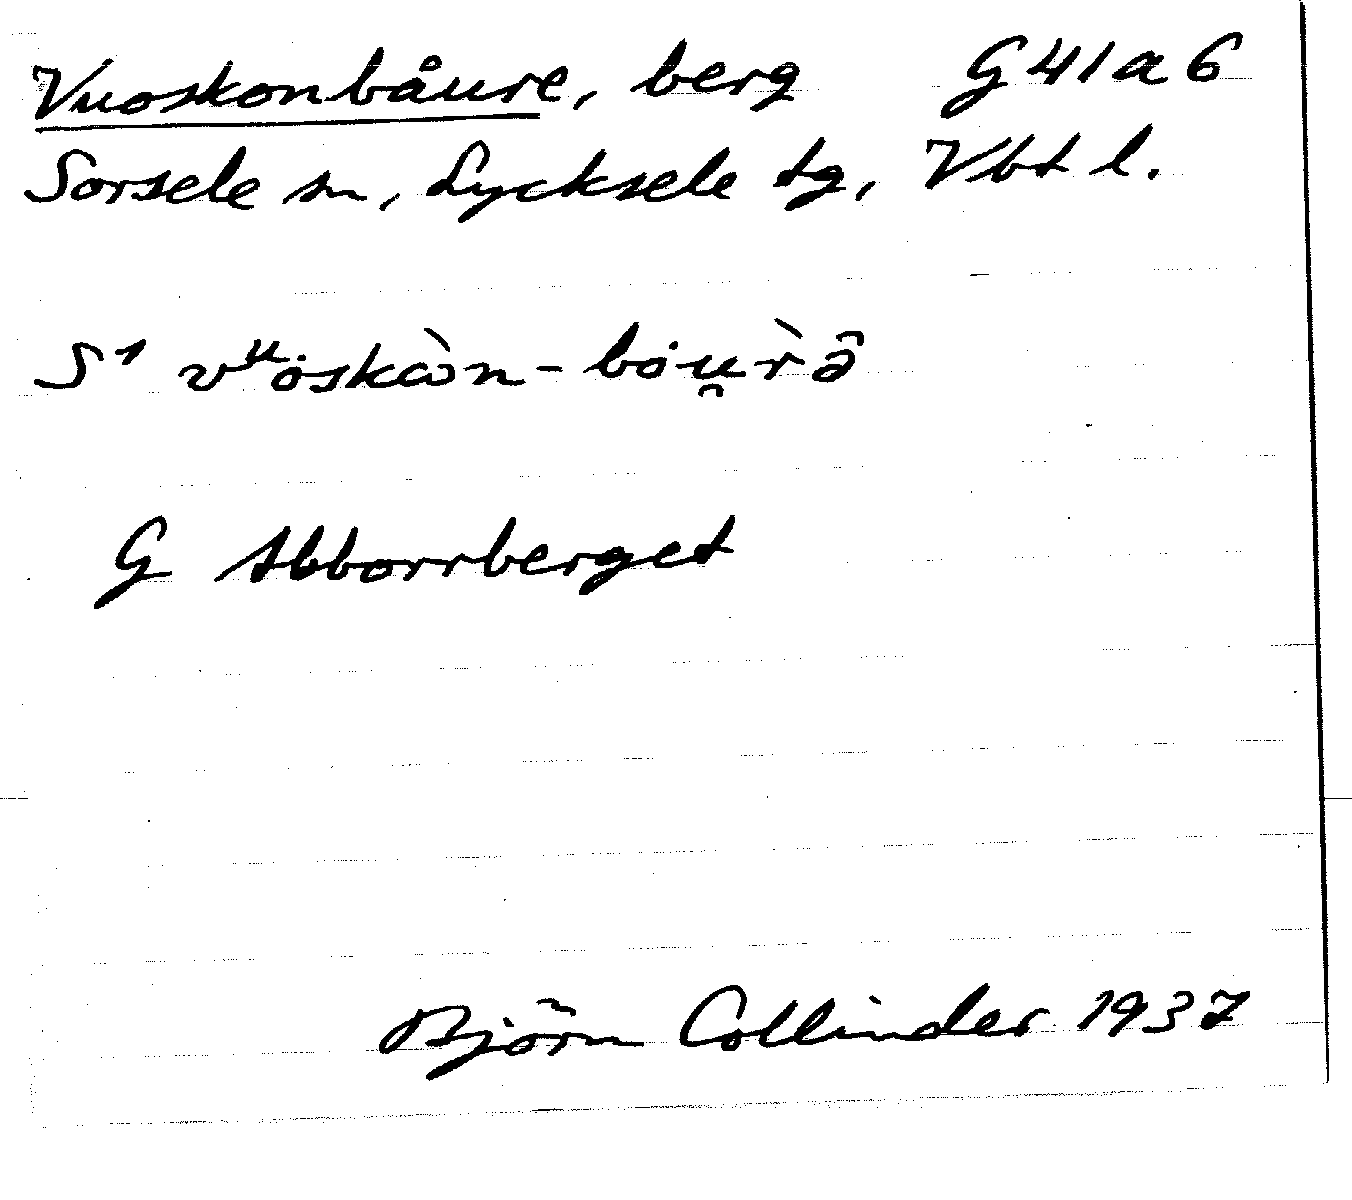 Vuoskonbåure, berg G41a6
Sorsele sn, Lycksele tg, Vbt l.
S¹ vᵘöskὼn-bȯu̯r̀ə̑
G Abborrberget
Björn Collinder 1937